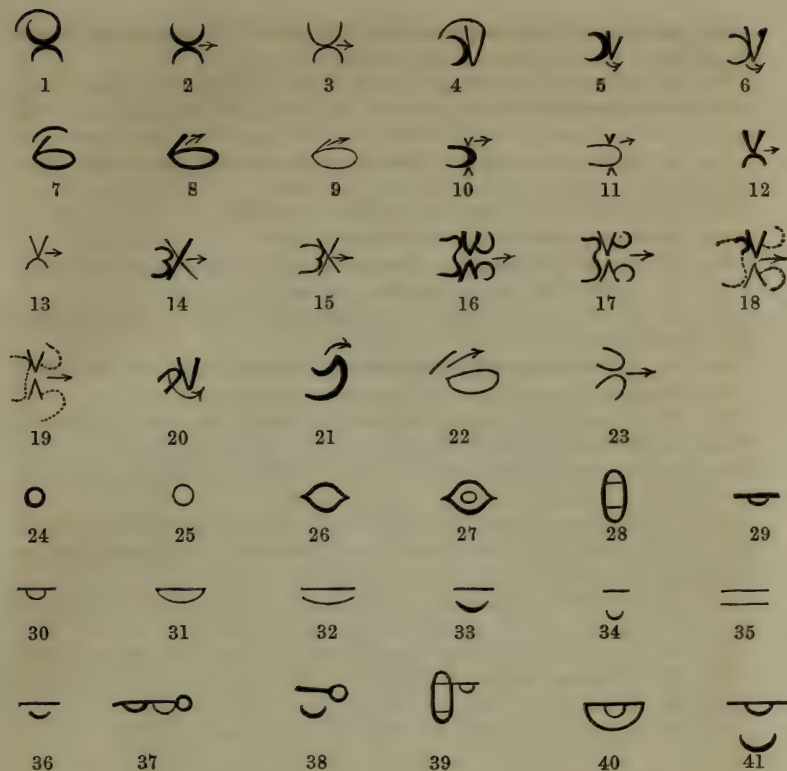 1 2 3 4 5 6
7 8 9 10 11 12
13 14 15 16 17 18
19 20 21 22 23
24 25 26 27 28 29
30 31 32 33 34 35
36 37 38 39 40 41